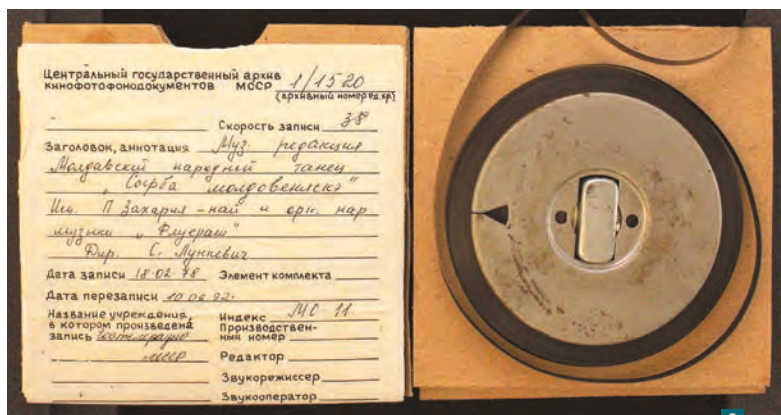 Центральный государственный архив
кинофотофонодокументов МССР 1/1520
(архивный номер ед хр)
Скорость записи 38
Заголовок, аннотация Муз. редакция
Молдавский народный танец
„Сырба молдовеняскэ"
Исп. П Захария – най и орк. нар
музыки „Флуераш"
Дир. С. Лункевич
Дата записи 18.02 78 Элемент комплекта
Дата перезаписи 10.06.92.
Название учреждения, Индекс МС 11
в котором произведена Производствен-
запись Гостелерадио ный номер
МССР Редактор
Звукорежиссер
Звукооператор